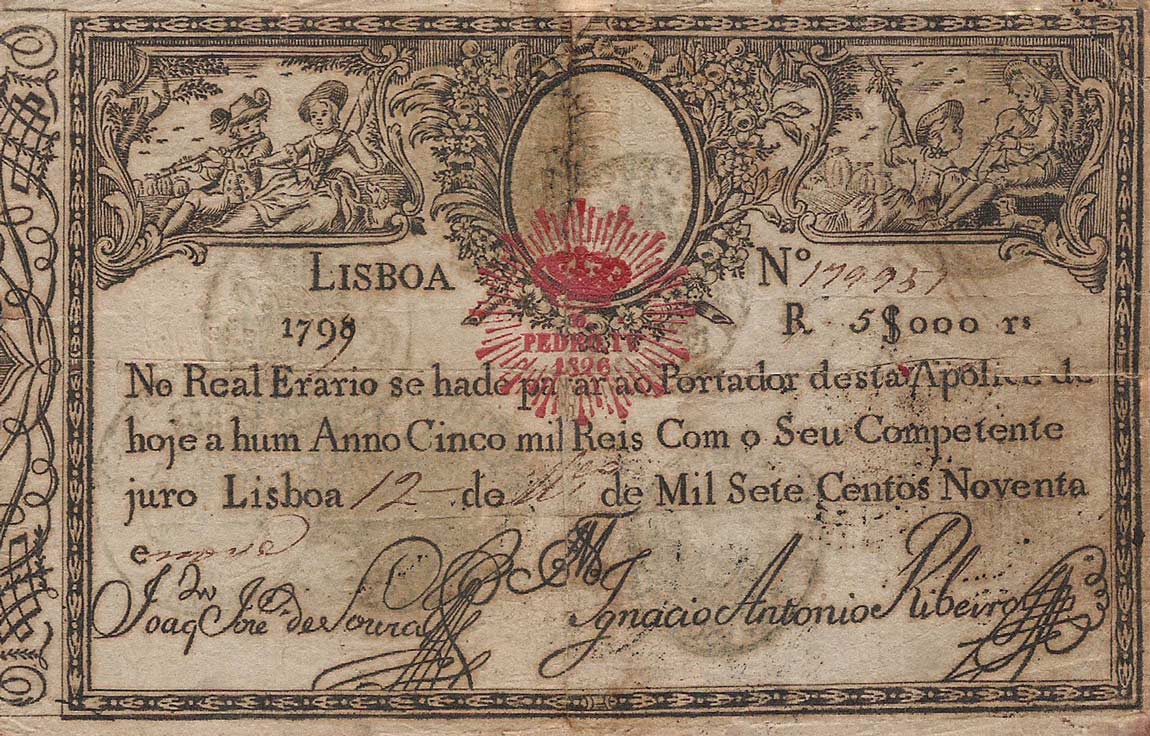 LISBOA
Nº 179951
1799
R 5$000 rs
PEDRO IV
1826
No Real Erario se hade pagar ao Portador desta Apolice de
hoje a hum Anno Cinco mil Reis Com o Seu Competente
juro Lisboa 12 de de Mil Sete Centos Noventa
e nove
Joaq José de Souza
Ignacio Antonio Ribeiro